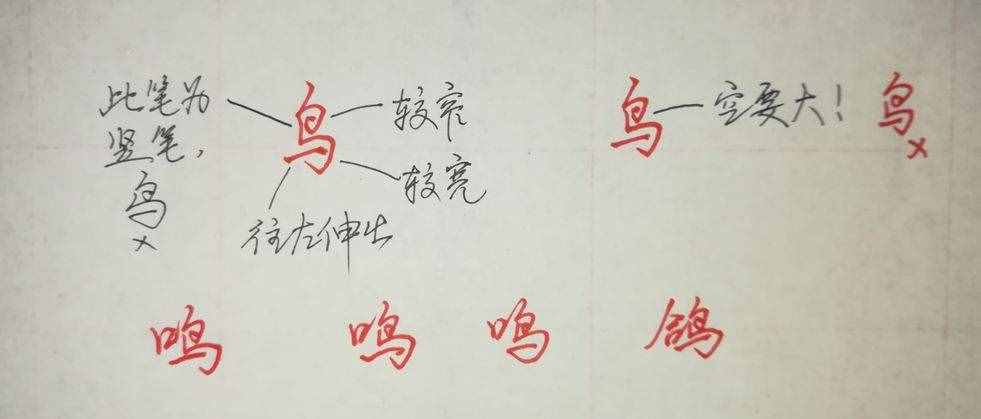 此笔为
竖笔，
鸟
×
鸟
较窄
较宽
往左伸出
鸟
空要大！
鸟
×
鸣 鸣 鸣 鸽